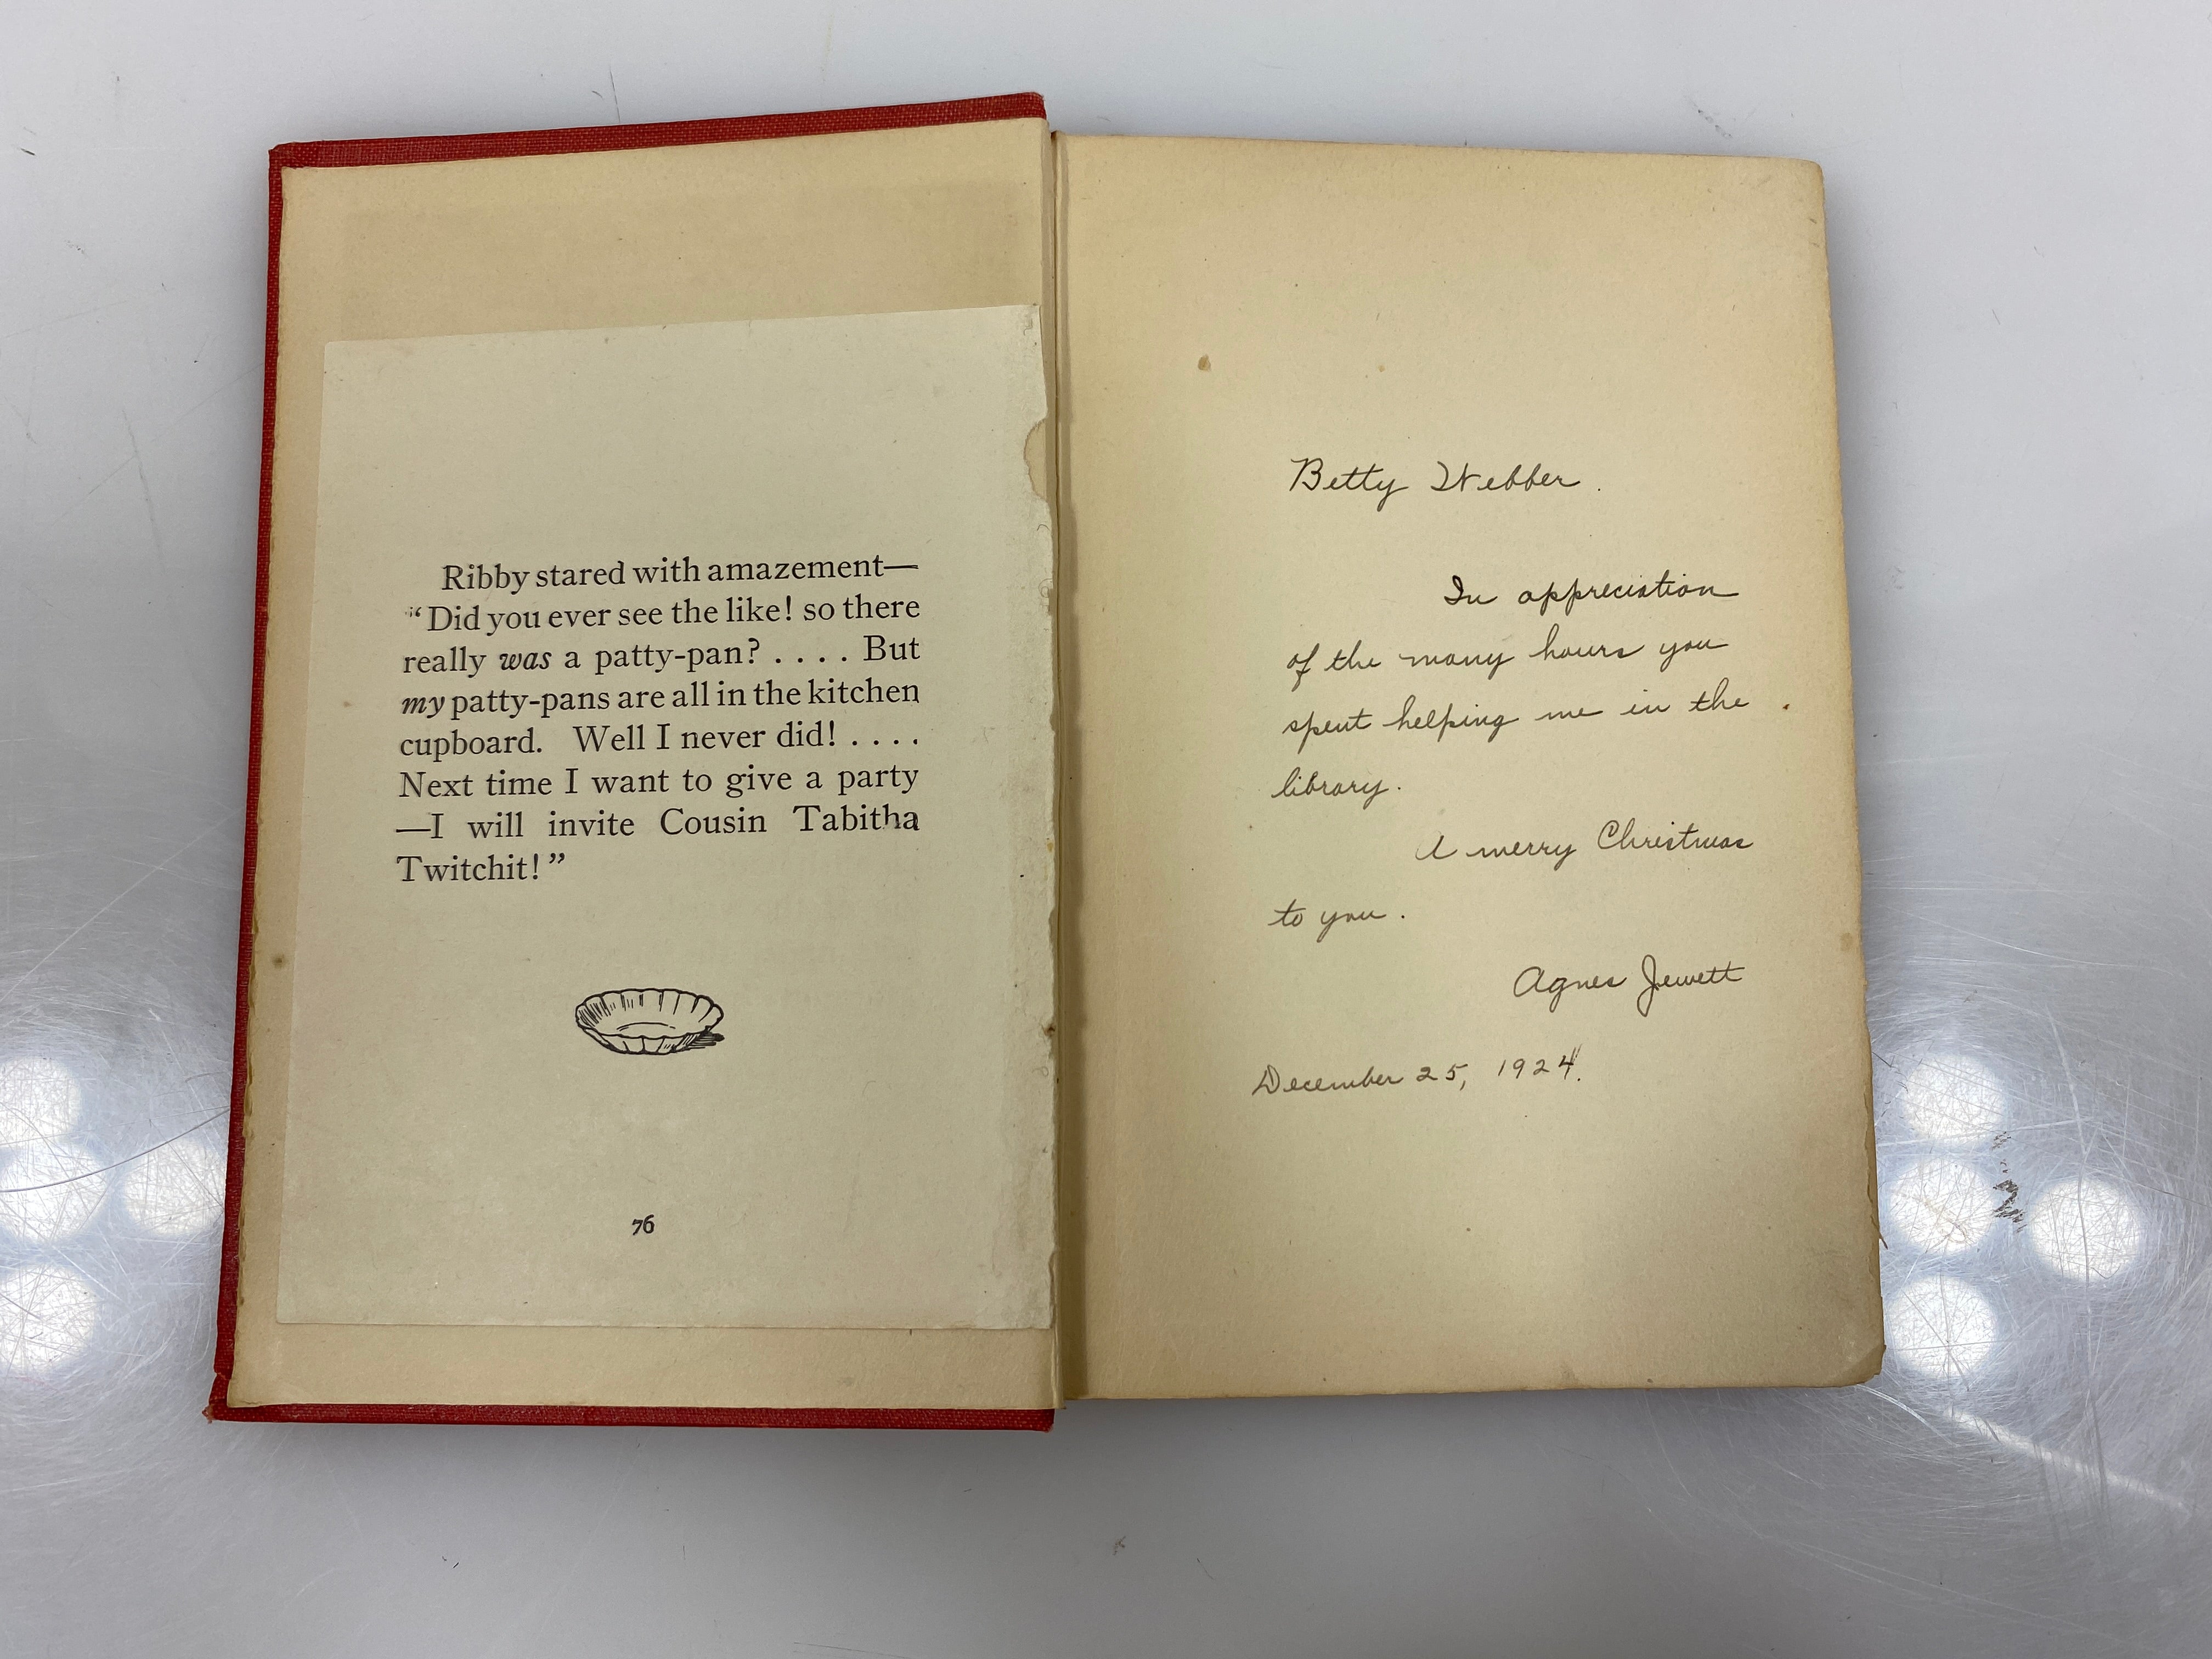 Ribby stared with amazement—
“Did you ever see the like! so there
really was a patty-pan? . . . . But
my patty-pans are all in the kitchen
cupboard. Well I never did! . . . .
Next time I want to give a party
—I will invite Cousin Tabitha
Twitchit!”
76
Betty Webber.
In appreciation
of the many hours you
spent helping me in the
library.
A merry Christmas
to you.
Agnes Jewett
December 25, 1924.